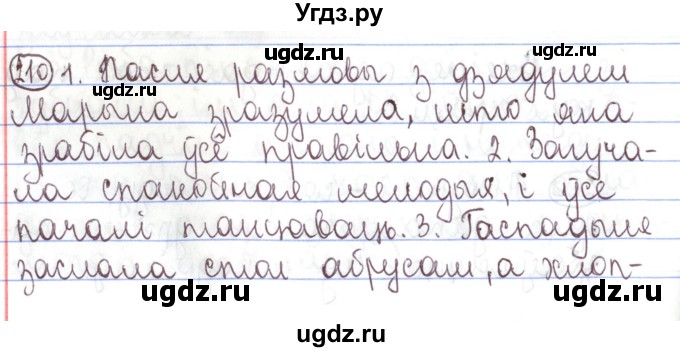 Угдз.ру
ugdz.ru ugdz.ru
210 1. Пасля размовы з дзядулем
Марына зразумела, што яна
ugdz.ru ugdz.ru
зрабіла ўсё правільна. 2. Загуча-
ла спакойная мелодыя, і ўсе
ugdz.ru
пачалі танцаваць. 3. Гаспадыня
ugdz.ru
заслала стол абрусам, а хлоп-
ugdz.ru ugdz.ru
Угдз.ру